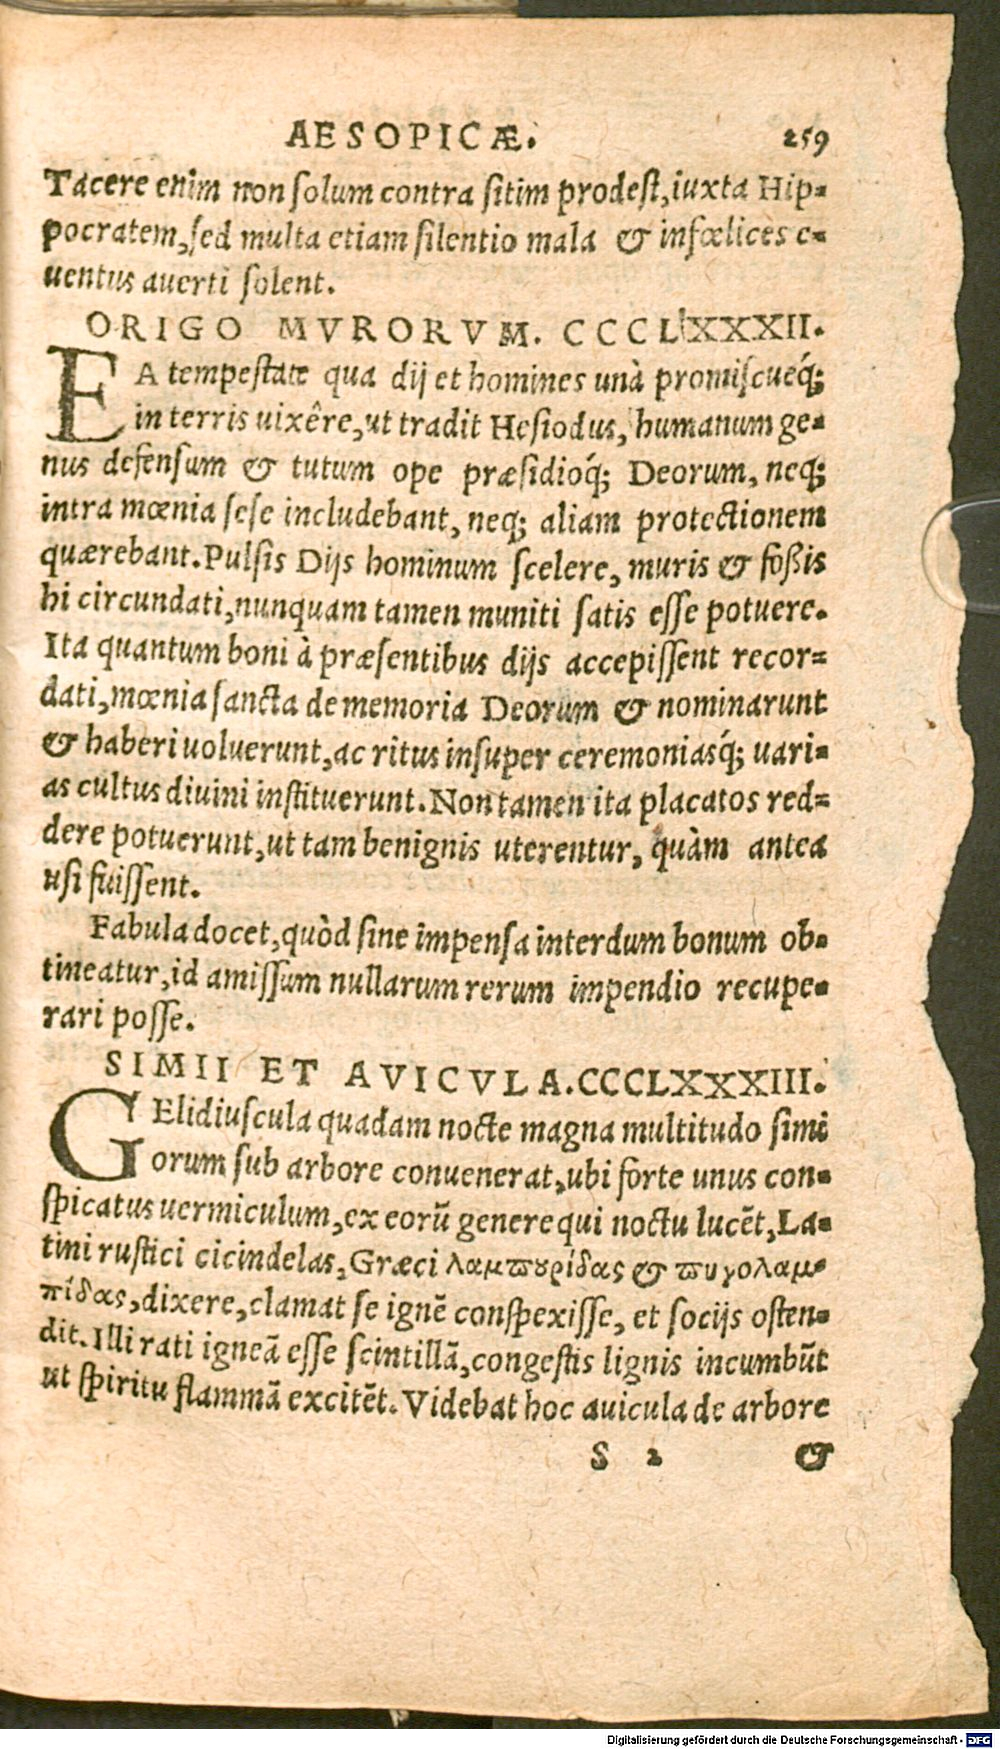 AESOPICÆ. 259
Tacere enim non solum contra sitim prodest, iuxta Hip-
pocratem, sed multa etiam silentio mala & infœlices e-
uentus auerti solent.
ORIGO MVRORVM. CCCLXXXII.
EA tempestate qua dij et homines unà promiscueq́;
in terris uixêre, ut tradit Hesiodus, humanum ge-
nus defensum & tutum ope præsidioq́; Deorum, neq;
intra mœnia sese includebant, neq; aliam protectionem
quærebant. Pulsis Dijs hominum scelere, muris & foßis
hi circundati, nunquam tamen muniti satis esse potuere.
Ita quantum boni à præsentibus dijs accepissent recor-
dati, mœnia sancta de memoria Deorum & nominarunt
& haberi uoluerunt, ac ritus insuper ceremoniasq́; uari-
as cultus diuini instituerunt. Non tamen ita placatos red-
dere potuerunt, ut tam benignis uterentur, quàm antea
usi fuissent.
Fabula docet, quòd sine impensa interdum bonum ob-
tineatur, id amissum nullarum rerum impendio recupe-
rari posse.
SIMII ET AVICVLA. CCCLXXXIII.
GElidiuscula quadam nocte magna multitudo simi
orum sub arbore conuenerat, ubi forte unus con-
spicatus uermiculum, ex eorũ genere qui noctu lucẽt, La-
tini rustici cicindelas, Græci λαμπουρίδας & πυγολαμ-
πίδας, dixere, clamat se ignẽ conspexisse, et socijs osten-
dit. Illi rati igneã esse scintillã, congestis lignis incumbũt
ut spiritu flammã excitẽt. Videbat hoc auicula de arbore
S 2 &
Digitalisierung gefördert durch die Deutsche Forschungsgemeinschaft - DFG